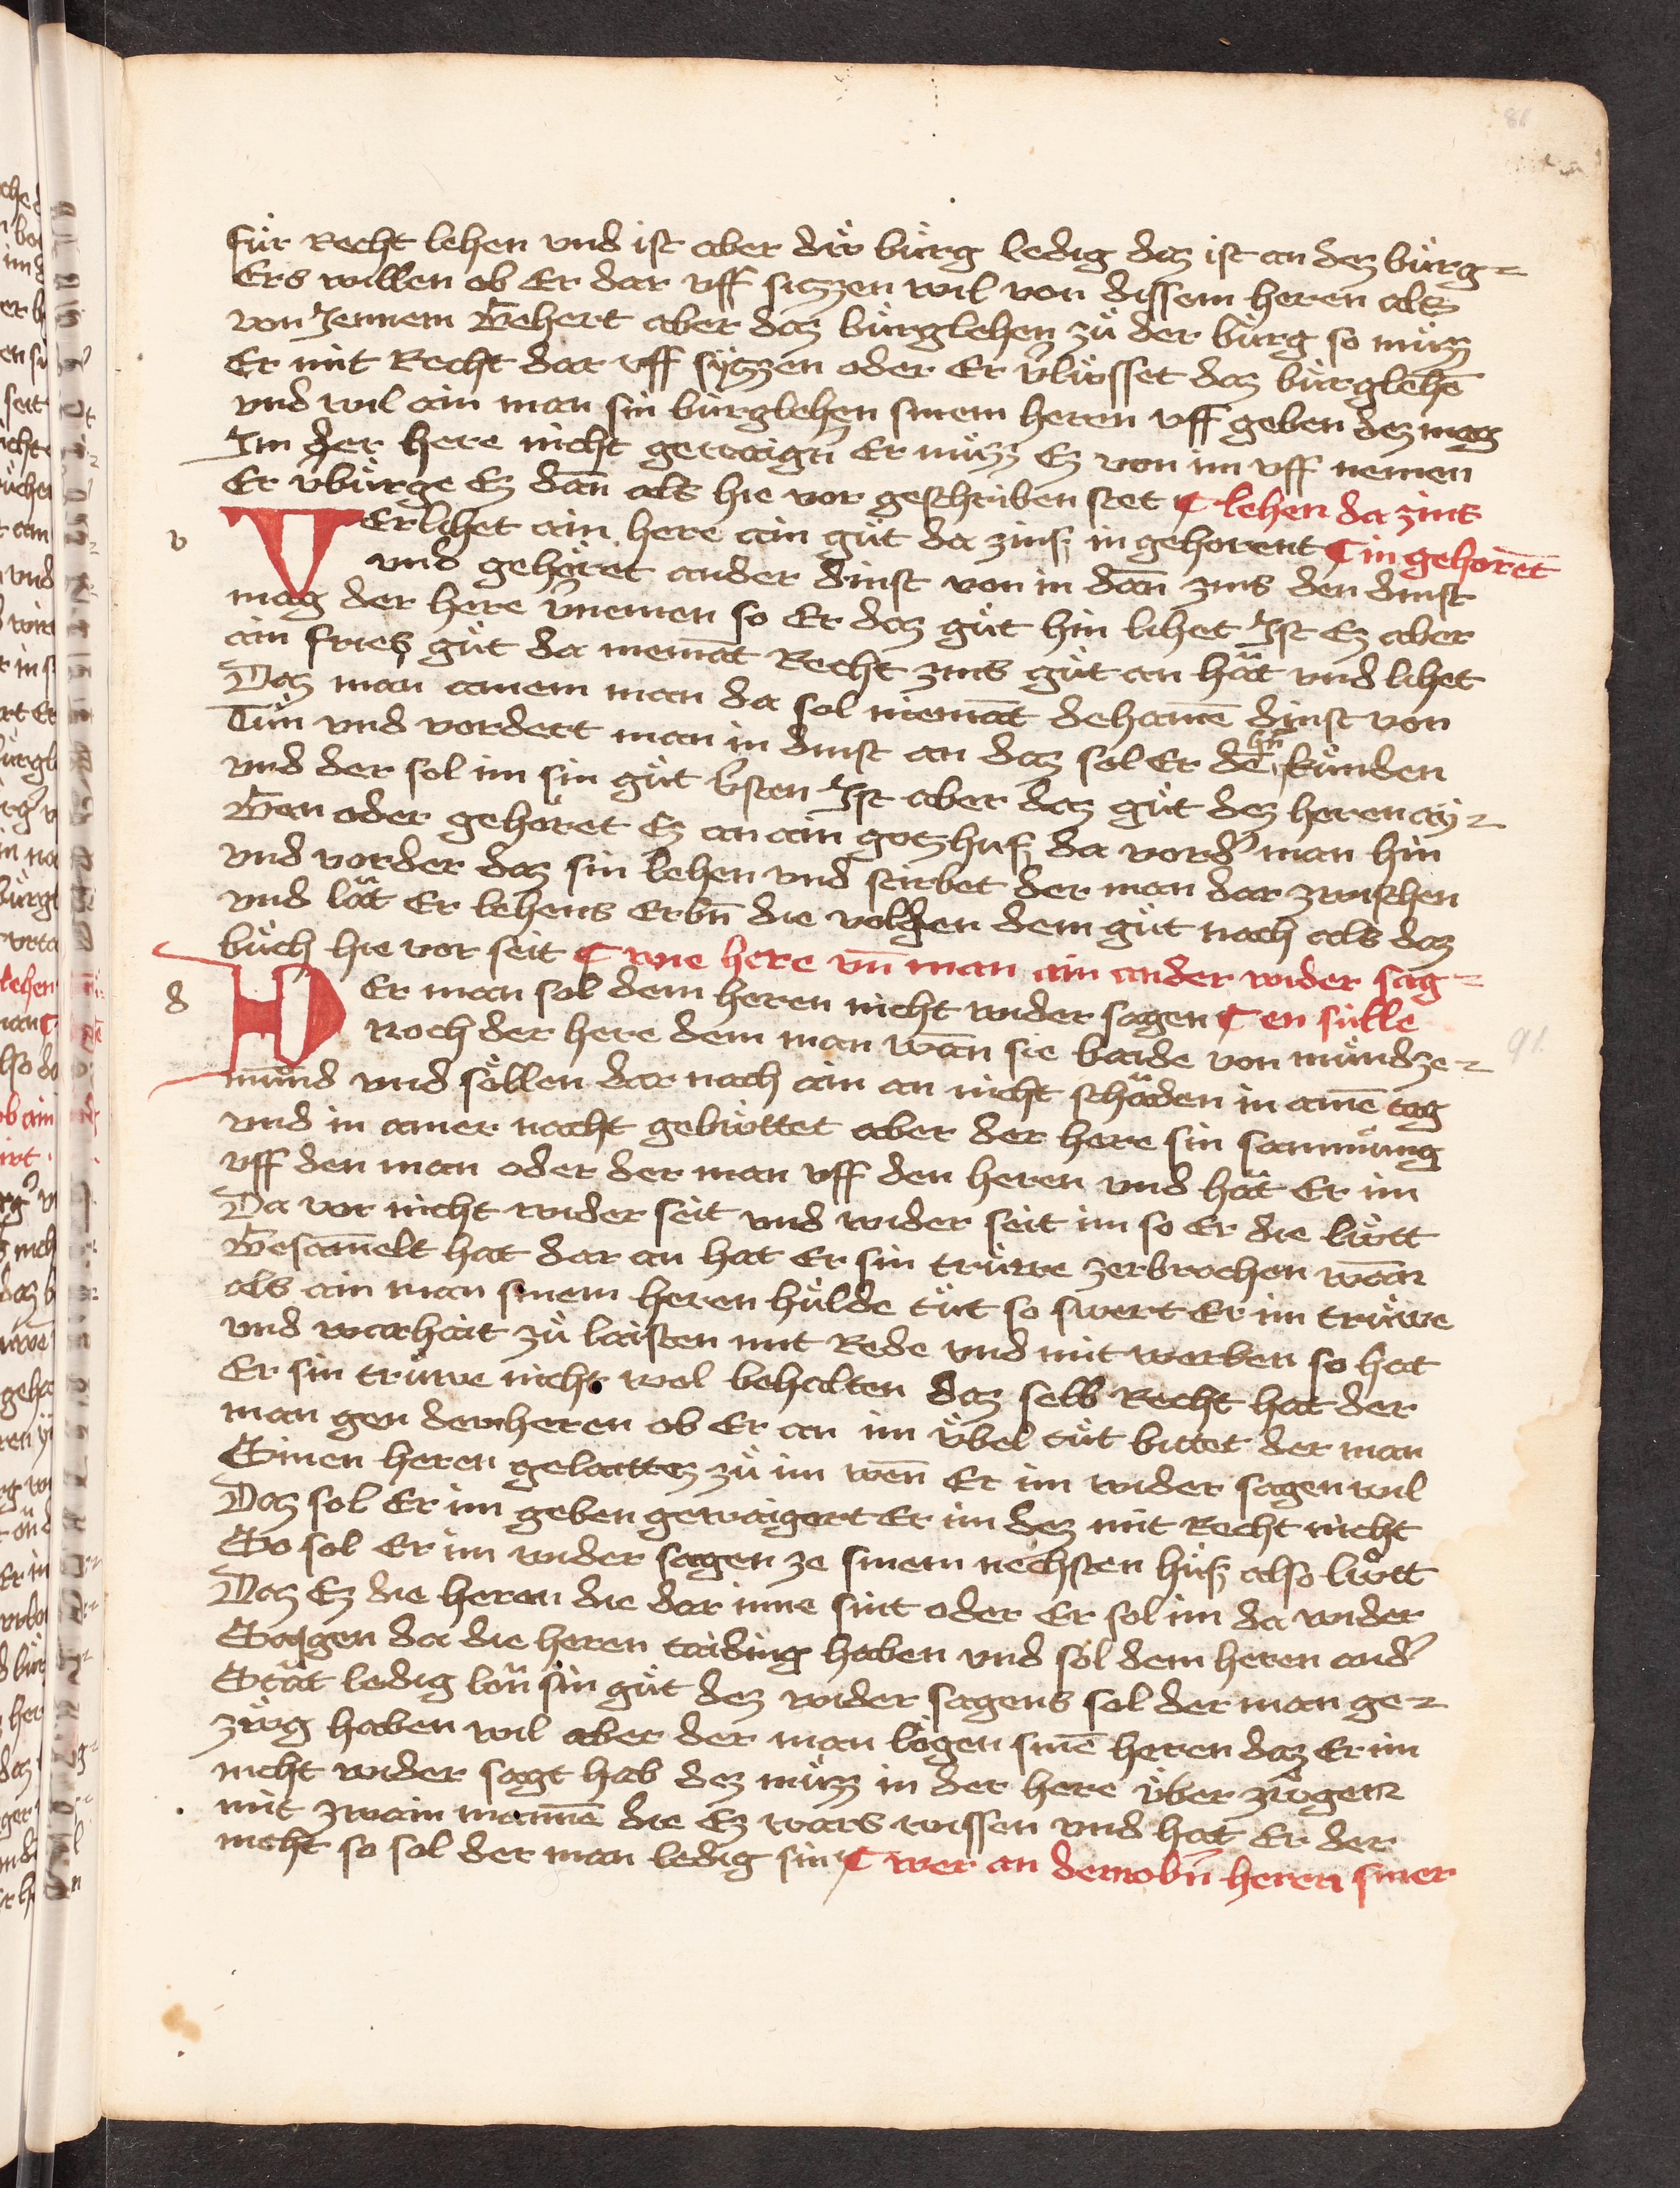 für Recht lehen vnd ist aber diͤ buͤrg ledig daz ist an dez buͤrg⸗
Ers willen ob Er dar vff sitzzen wil von dissem heren als
von Jennem Gehert aber daz buͤrglehen zuͦ der buͤrg so muͦzz
Er mit Recht dar vff sÿtzzen oder Er v̾luͤsset daz buͤrglehē
vnd wil ain man sin buͤrglehen sinem heren vff geben dez mag
Im der here nicht gewaigrn̄ Er muͦzz Ez von im vff nemen
Er vbuͤrge Ez dan̄ als hie vor geschriben stet ¶ lehen da zins
VErlihet ain here ain guͦt da zinsz in gehorent ¶ in gehorēt
vnd gehoͤret ander dinst von in dan̄ zins den dinst
mag der here v̾nemen so Er daz guͦt hin lihet Ist Ez aber
ain fries guͦt da niemāt Recht zins guͦt an haͤt vnd lihet
Daz man ainem man da sol niemāt dehainē dinst von
Tuͦn vnd vordert man in dinst an daz sol Er dē hn̄ kuͤnden
vnd der sol im sin guͦt v̾sten Ist aber daz guͦt dez heren aÿ⸗
Gen oder gehoͤret Ez an ain gotzhusz da vord̾ man hin
vnd vorder daz sin lehen vnd stirbet der man dar zwischen
vnd laͤt Er lehens Erbn̄ die volgen dem guͦt nach als daz
buͦch hie vor seit ¶ wie here vn̄ man ain ander wider sag⸗
DEr man sol dem heren nicht wider sagen ¶ en suͤlle
Noch der here dem man wan̄ sie baide von muͤndze⸗
muͤnd vnd soͤllen dar nach ain an nicht schaͤden in ainē tag
vnd in ainer nacht gebuͤttet aber der here sin samnuͤng
vff den man oder der man vff den heren vnd haͤt Er im
Da vor nicht wider seit vnd wider seit im so Er die luͤtt
Gesam̄elt hat dar an hat Er sin truͤwe zerbrochen wan̄
als ain man sinem heren huͤlde tuͦt so swert Er im truͤwe
vnd warhait zuͦ laisten mit Rede vnd mit werken so hat
Er sin truͤwe nicht wol behalten daz selb Recht hat der
man gen dem heren ob Er an im uͤbel tuͦt bittet der man
Sinen heren gelaittez zuͦ im wen̄ Er im wider sagen wil
Daz sol Er im geben gewaigert Er im dez mit Recht nicht
So sol Er im wider sagen ze sinem nechsten husz also luͤtt
Daz Ez die heren die dar inne sint oder Er sol im da wider
Saggen da die heren taiding haben vnd sol dem heren and̾
Staͤt ledig lan̄ sin guͦt dez wider sagens sol der man ge⸗
zuͤg haben wil aber der man loͤgen sinē heren daz Er im
nicht wider sagt hab dez muͦzz in der here uͤber zuͤgen
mit zwain mannē die Ez wars wissen vnd hat Er der
nicht so sol der man ledig sin ¶ wer an demobn̄ heren siner
v
d
91.